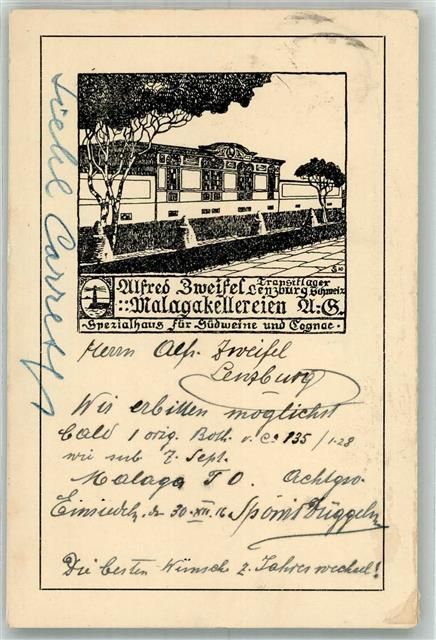 Alfred Zweifel Transitlager
Lenzburg Schweiz
::Malagakellereien A:G.
·Spezialhaus für Südweine und Cognac·
Herrn Alf. Zweifel
Lenzburg
Wir erbitten möglichst
bald 1 orig. Both. v. ca 135 / 128
wie sub 7. Sept.
Malaga
Einsiedeln, den 30. XII. 16
Die besten Wünsch z. Jahreswechsel!
Siehe